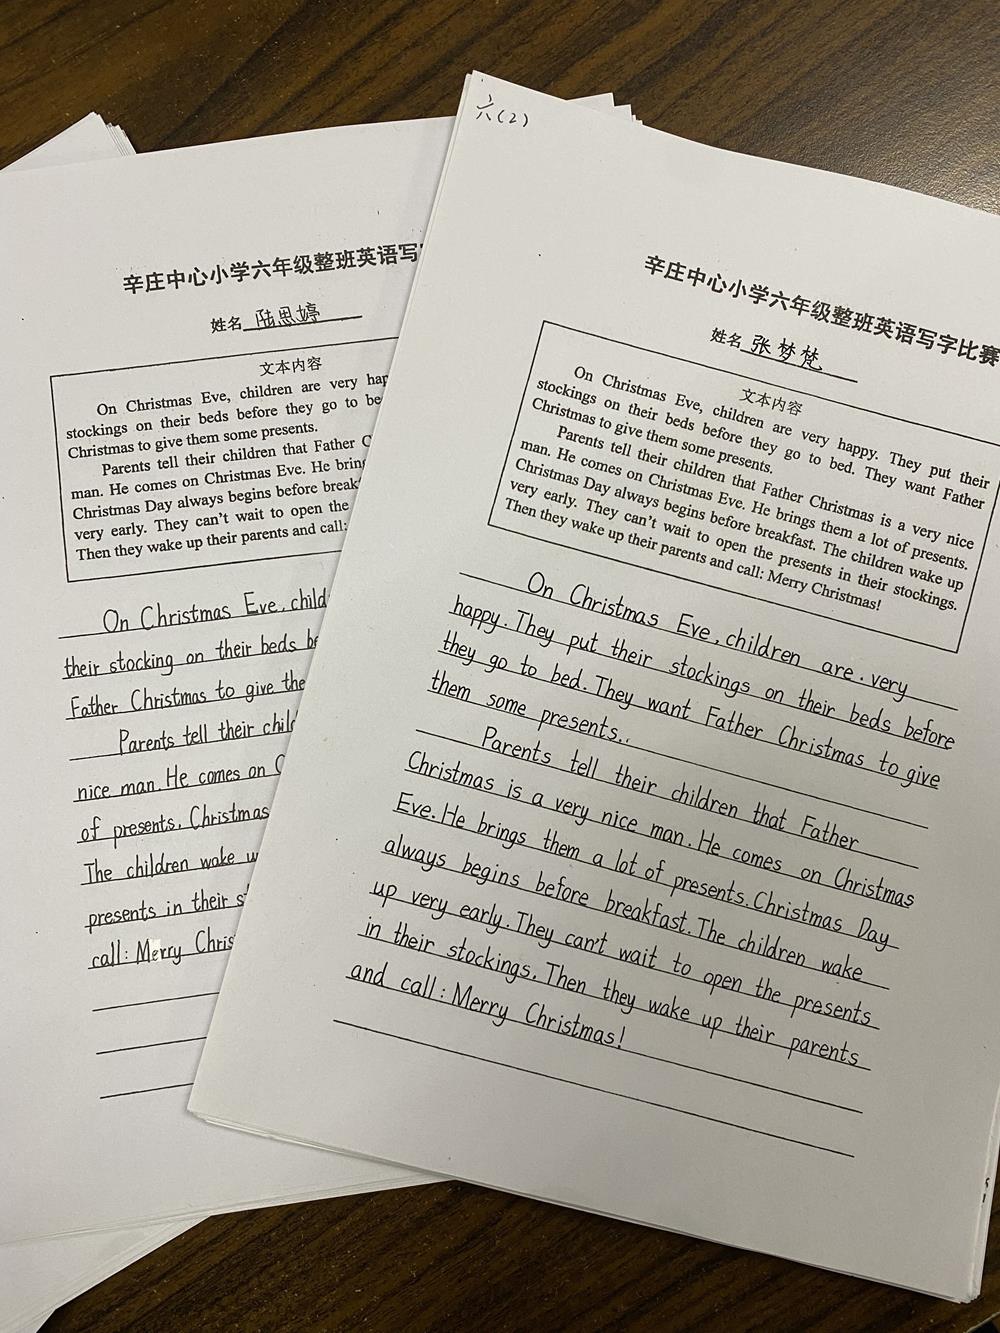 辛庄中心小学六年级整班英语写
姓名 陆思婷
文本内容
On Christmas Eve, children are very
stockings on their beds before they go to be
Christmas to give them some presents.
Parents tell their children that Father
man. He comes on Christmas Eve. He
Christmas Day always begins before
very early. They can't wait to open the
Then they wake up their parents and call:
On Christmas Eve, child
their stocking on their beds be
Father Christmas to give the
Parents tell their child
nice man. He comes on C
of presents. Christmas
The children wake u
presents in their s
call: Merry Chris
六(2)
辛庄中心小学六年级整班英语写字比赛
姓名 张梦梵
文本内容
On Christmas Eve, children are very happy. They put their
stockings on their beds before they go to bed. They want Father
Christmas to give them some presents.
Parents tell their children that Father Christmas is a very nice
man. He comes on Christmas Eve. He brings them a lot of presents.
Christmas Day always begins before breakfast. The children wake up
very early. They can't wait to open the presents in their stockings.
Then they wake up their parents and call: Merry Christmas!
On Christmas Eve, children are. very
happy. They put their stockings on their beds before
they go to bed. They want Father Christmas to give
them some presents..
Parents tell their children that Father
Christmas is a very nice man. He comes on Christmas
Eve. He brings them a lot of presents. Christmas Day
always begins before breakfast. The children wake
up very early. They can't wait to open the presents
in their stockings. Then they wake up their parents
and call: Merry Christmas!